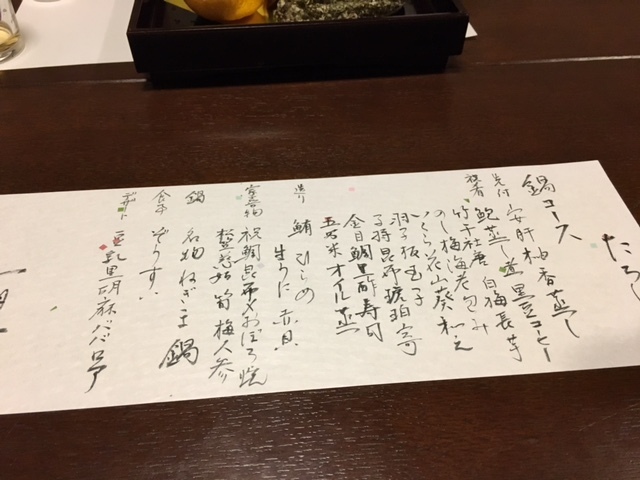 鍋コース
先付 安肝柚香蒸し
鮑蒸し煮 黒豆コーヒー
祝肴 竹干社唐 白梅長芋
のし梅海老包み
いくら花山葵和え
羽子板玉子
子持昆布琥珀寄
金目鯛黒酢寿司
五万米オイル蒸
造り 鮪 ひらめ
生うに 赤貝
宝楽物 祝鯛昆布〆おぼろ焼
松笠慈姑 筍 梅人参
鍋 名物ねぎま鍋
食事 ぞうすい
デザート 豆乳黒胡麻ババロア
一月